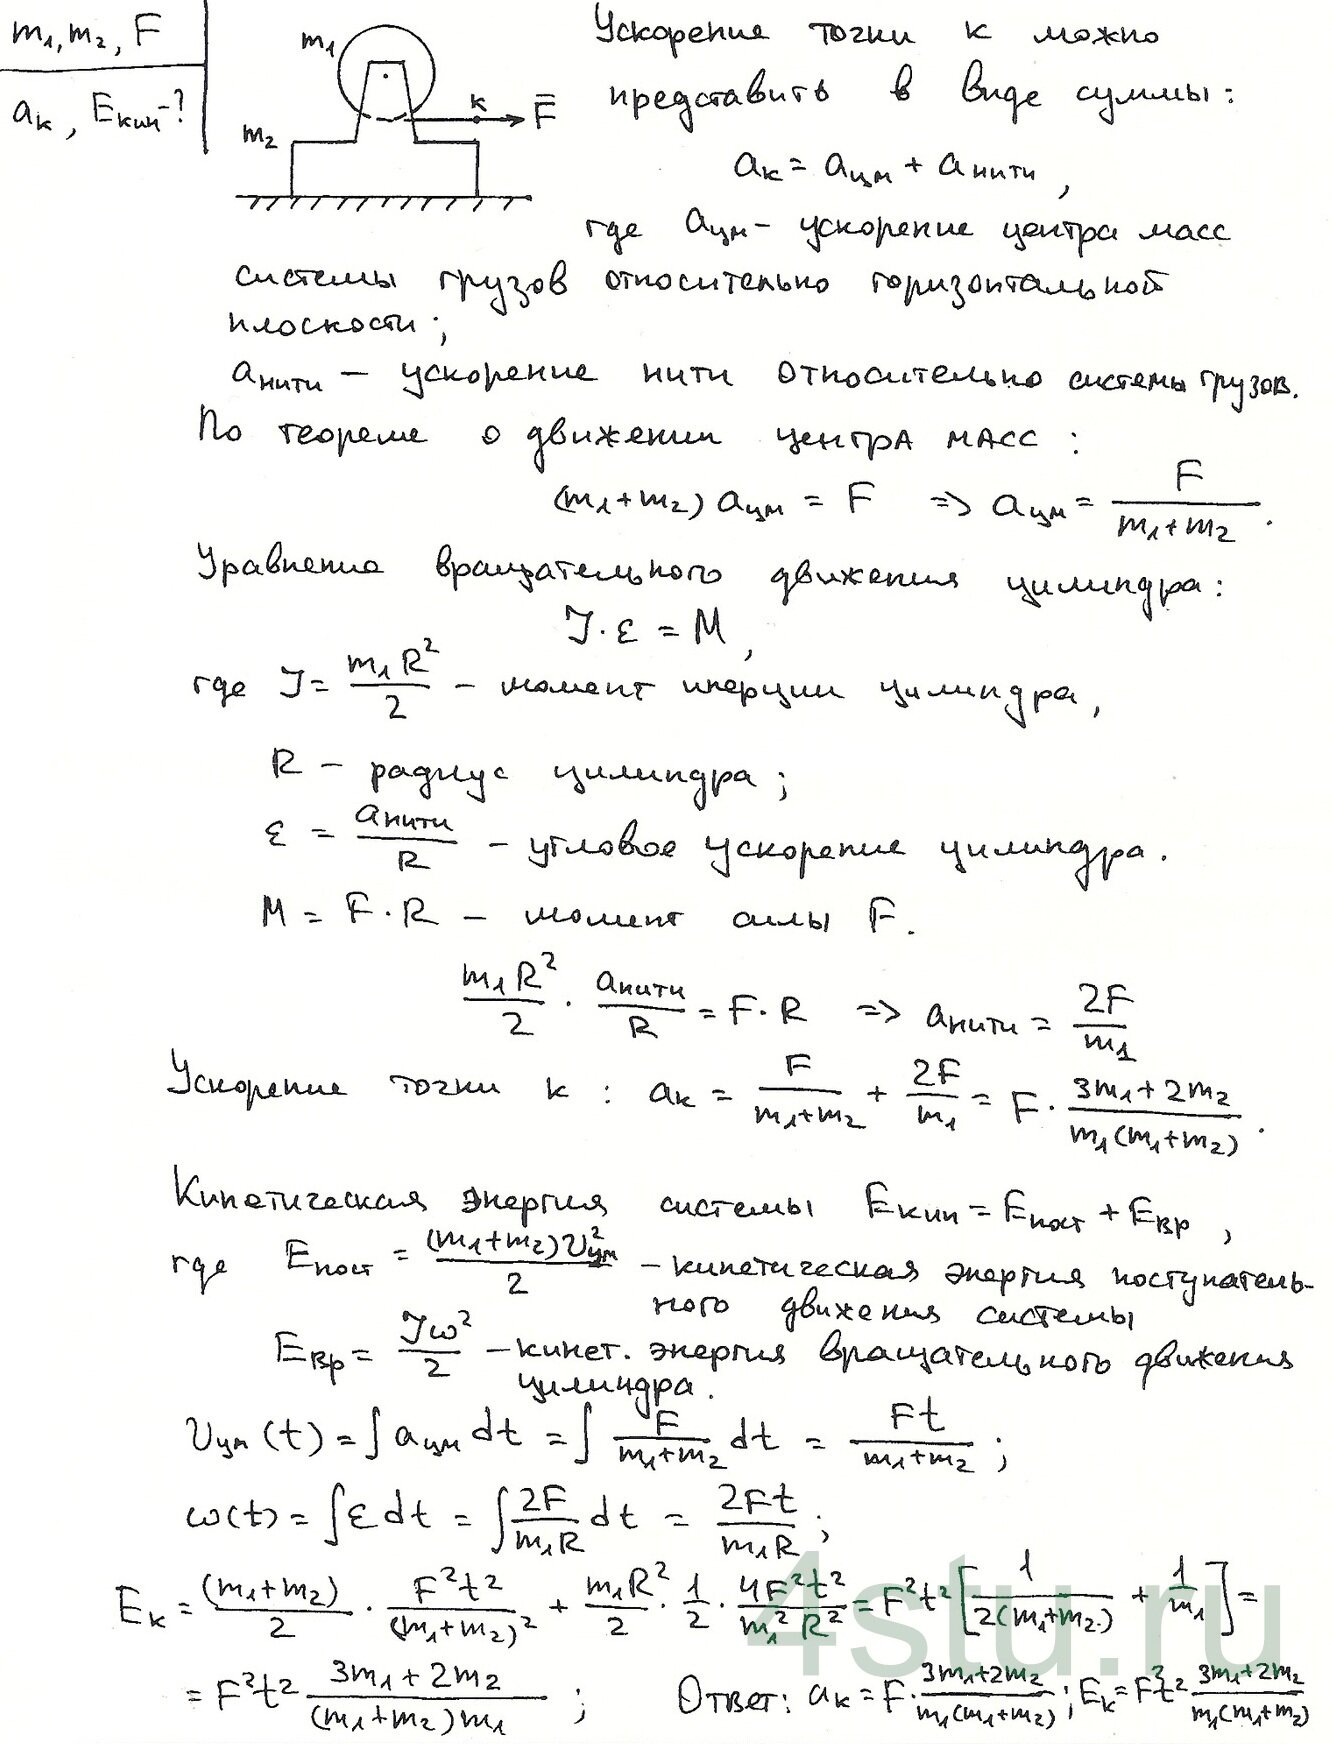 m₁, m₂, F
aₖ, Eкин -?
m₁
m₂
к
F̅
Ускорение точки к можно
представить в виде суммы:
aₖ = aцм + aнити,
где aцм - ускорение центра масс
системы грузов относительно горизонтальной
плоскости;
aнити - ускорение нити относительно системы грузов.
По теореме о движении центра масс:
(m₁+m₂) aцм = F => aцм = F/(m₁+m₂).
Уравнение вращательного движения цилиндра:
J·ε = M,
где J = m₁R²/2 - момент инерции цилиндра,
R - радиус цилиндра;
ε = aнити/R - угловое ускорение цилиндра.
M = F·R - момент силы F.
m₁R²/2 · aнити/R = F·R => aнити = 2F/m₁
Ускорение точки к: aₖ = F/(m₁+m₂) + 2F/m₁ = F· (3m₁+2m₂)/(m₁(m₁+m₂)).
Кинетическая энергия системы Eкин = Eпост + Eвр,
где Eпост = (m₁+m₂)υ²цм/2 - кинетическая энергия поступатель-
ного движения системы
Eвр = Jω²/2 - кинет. энергия вращательного движения
цилиндра.
υцм(t) = ∫aцм dt = ∫ F/(m₁+m₂) dt = Ft/(m₁+m₂);
ω(t) = ∫ε dt = ∫ 2F/(m₁R) dt = 2Ft/(m₁R);
Eₖ = (m₁+m₂)/2 · F²t²/(m₁+m₂)² + m₁R²/2 · 1/2 · 4F²t²/(m₁²R²) = F²t² [1/(2(m₁+m₂)) + 1/m₁] =
= F²t² (3m₁+2m₂)/((m₁+m₂)m₁) ; Ответ: aₖ = F· (3m₁+2m₂)/(m₁(m₁+m₂)); Eₖ = F²t² (3m₁+2m₂)/(m₁(m₁+m₂))
4stu.ru